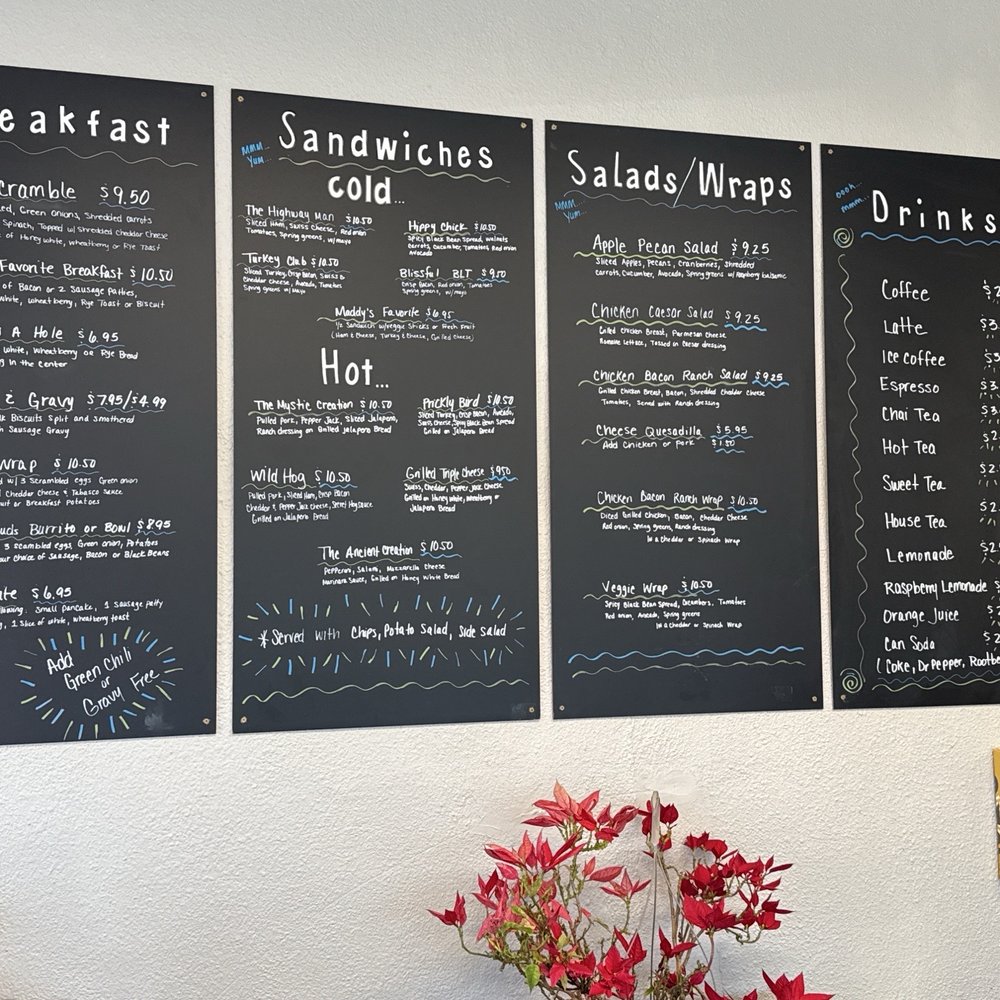 eakfast
cramble $9.50
ed, Green onions, Shredded carrots
Spinach, Topped w/ Shredded Cheddar Cheese
of Honey white, wheatberry or Rye Toast
Favorite Breakfast $10.50
of Bacon or 2 Sausage Patties,
white, wheatberry, Rye Toast or Biscuit
A Hole $6.95
white, Wheatberry or Rye Bread
in the center
& Gravy $7.95/$4.99
Biscuits Split and smothered
Sausage Gravy
Wrap $10.50
w/ 3 Scrambled eggs Green onion
Cheddar Cheese & Tabasco Sauce
or Breakfast Potatoes
uds Burrito or Bowl $8.95
3 scambled eggs, Green onion, Potatoes
our choice of Sausage, Bacon or Black Beans
ate $6.95
llowing: Small pancake, 1 Sausage patty
, 1 Slice of white, wheatberry toast
Add
Green Chili
or
Gravy Free
MMM...
Yum...
Sandwiches
cold...
The Highway Man $10.50
Sliced Ham, Swiss Cheese, Red onion
Tomatoes, Spring greens, w/mayo
Hippy Chick $10.50
Spicy Black Bean Spread, walnuts
carrots, cucumber, Tomatoes, Red onion
Avocado
Turkey Club $10.50
Sliced Turkey, Crisp Bacon, Swiss &
Cheddar Cheese, Avocado, Tomatoes
Spring greens w/Mayo
Blissful BLT $9.50
Crisp Bacon, Red onion, Tomatoes
Spring greens, w/mayo
Maddy's Favorite $6.95
1/2 Sandwich w/veggie Sticks or Fresh Fruit
(Ham & Cheese, Turkey & Cheese, Grilled Cheese)
Hot...
The Mystic Creation $10.50
Pulled Pork, Pepper Jack, Sliced Jalapeno,
Ranch dressing on Grilled Jalapeno Bread
Prickly Bird $10.50
Sliced Turkey, Crisp Bacon, Avocado,
Swiss Cheese, Spicy Black Bean Spread
Grilled on Jalapeno Bread
Wild Hog $10.50
Pulled Pork, Sliced Ham, Crisp Bacon
Cheddar & Pepper Jack Cheese, Secret Hog sauce
Grilled on Jalapeno Bread
Grilled Triple Cheese $9.50
Swiss, Cheddar, Pepper Jack Cheese
Grilled on Honey White, wheatberry or
Jalapeno Bread
The Ancient Creation $10.50
Pepperoni, Salami, Mozzarella Cheese
Marinara Sauce, Grilled on Honey White Bread
*Served with Chips, Potato Salad, Side Salad
MMM...
Yum...
Salads/Wraps
Apple Pecan Salad $9.25
Sliced Apples, Pecans, Cranberries, Shredded
Carrots, Cucumber, Avocado, Spring greens w/Raspberry balsamic
Chicken Caesar Salad $9.25
Grilled Chicken Breast, Parmesan Cheese
Romaine Lettuce, Tossed in Caesar dressing
Chicken Bacon Ranch Salad $9.25
Grilled Chicken Breast, Bacon, Shredded Cheddar Cheese
Tomatoes, Served with Ranch dressing
Cheese Quesadilla $5.95
Add Chicken or pork $1.50
Chicken Bacon Ranch Wrap $10.50
Diced Grilled Chicken, Bacon, Cheddar Cheese
Red onion, Spring greens, Ranch dressing
In a Cheddar or Spinach Wrap
Veggie Wrap $10.50
Spicy Black Bean Spread, Cucumbers, Tomatoes
Red onion, Avocado, Spring greens
In a Cheddar or Spinach Wrap
oooh...
mmm...
Drinks
Coffee $2
Latte $3
Ice coffee $3
Espresso $3
Chai Tea $3
Hot Tea $2
Sweet Tea $2
House Tea $2
Lemonade $2
Raspberry Lemonade $
Orange Juice $
Can Soda $2
(Coke, Dr Pepper, Rootbe